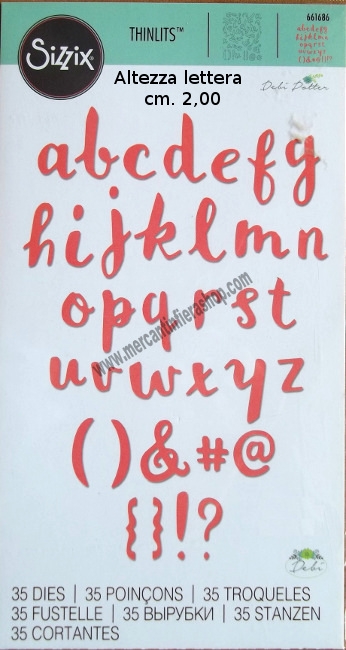 Sizzix
THINLITS™
661686
Altezza lettera
cm. 2,00
Debi Potter
abcdefg
hijklmn
opqrst
uvwxyz
()&#@
{}!?
www.mercantinfierashop.com
Debi
35 DIES | 35 POINÇONS | 35 TROQUELES
35 FUSTELLE | 35 ВЫРУБКИ | 35 STANZEN
35 CORTANTES